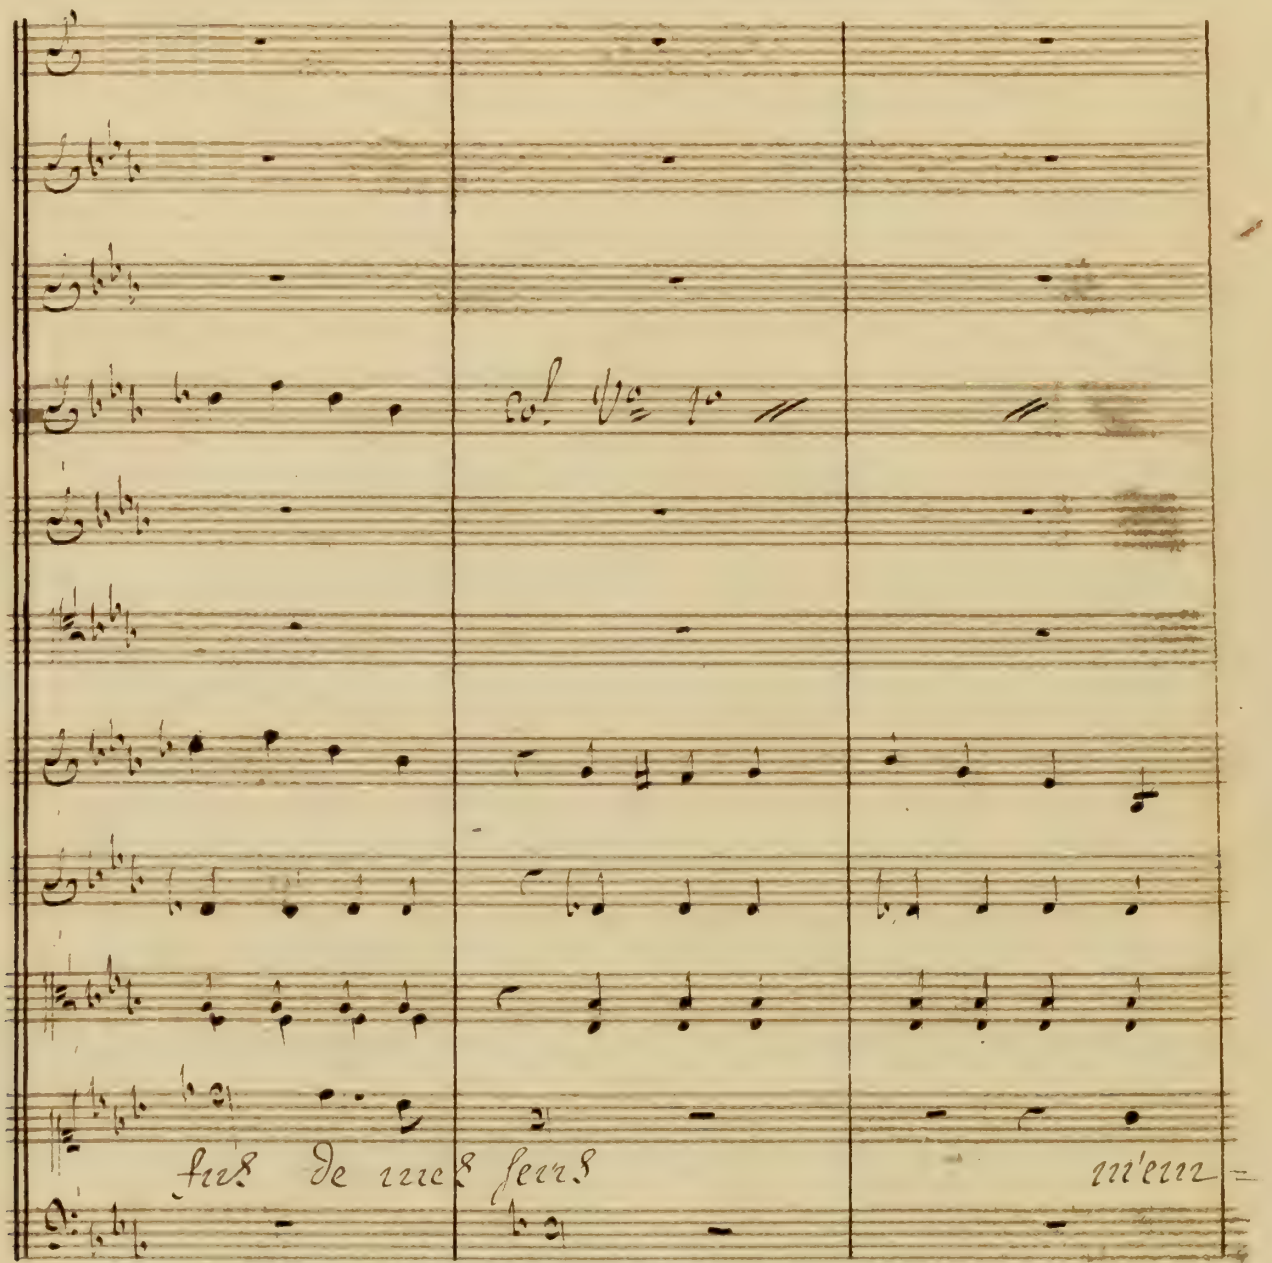 col Vno 1o
sus de mes sens m'em=